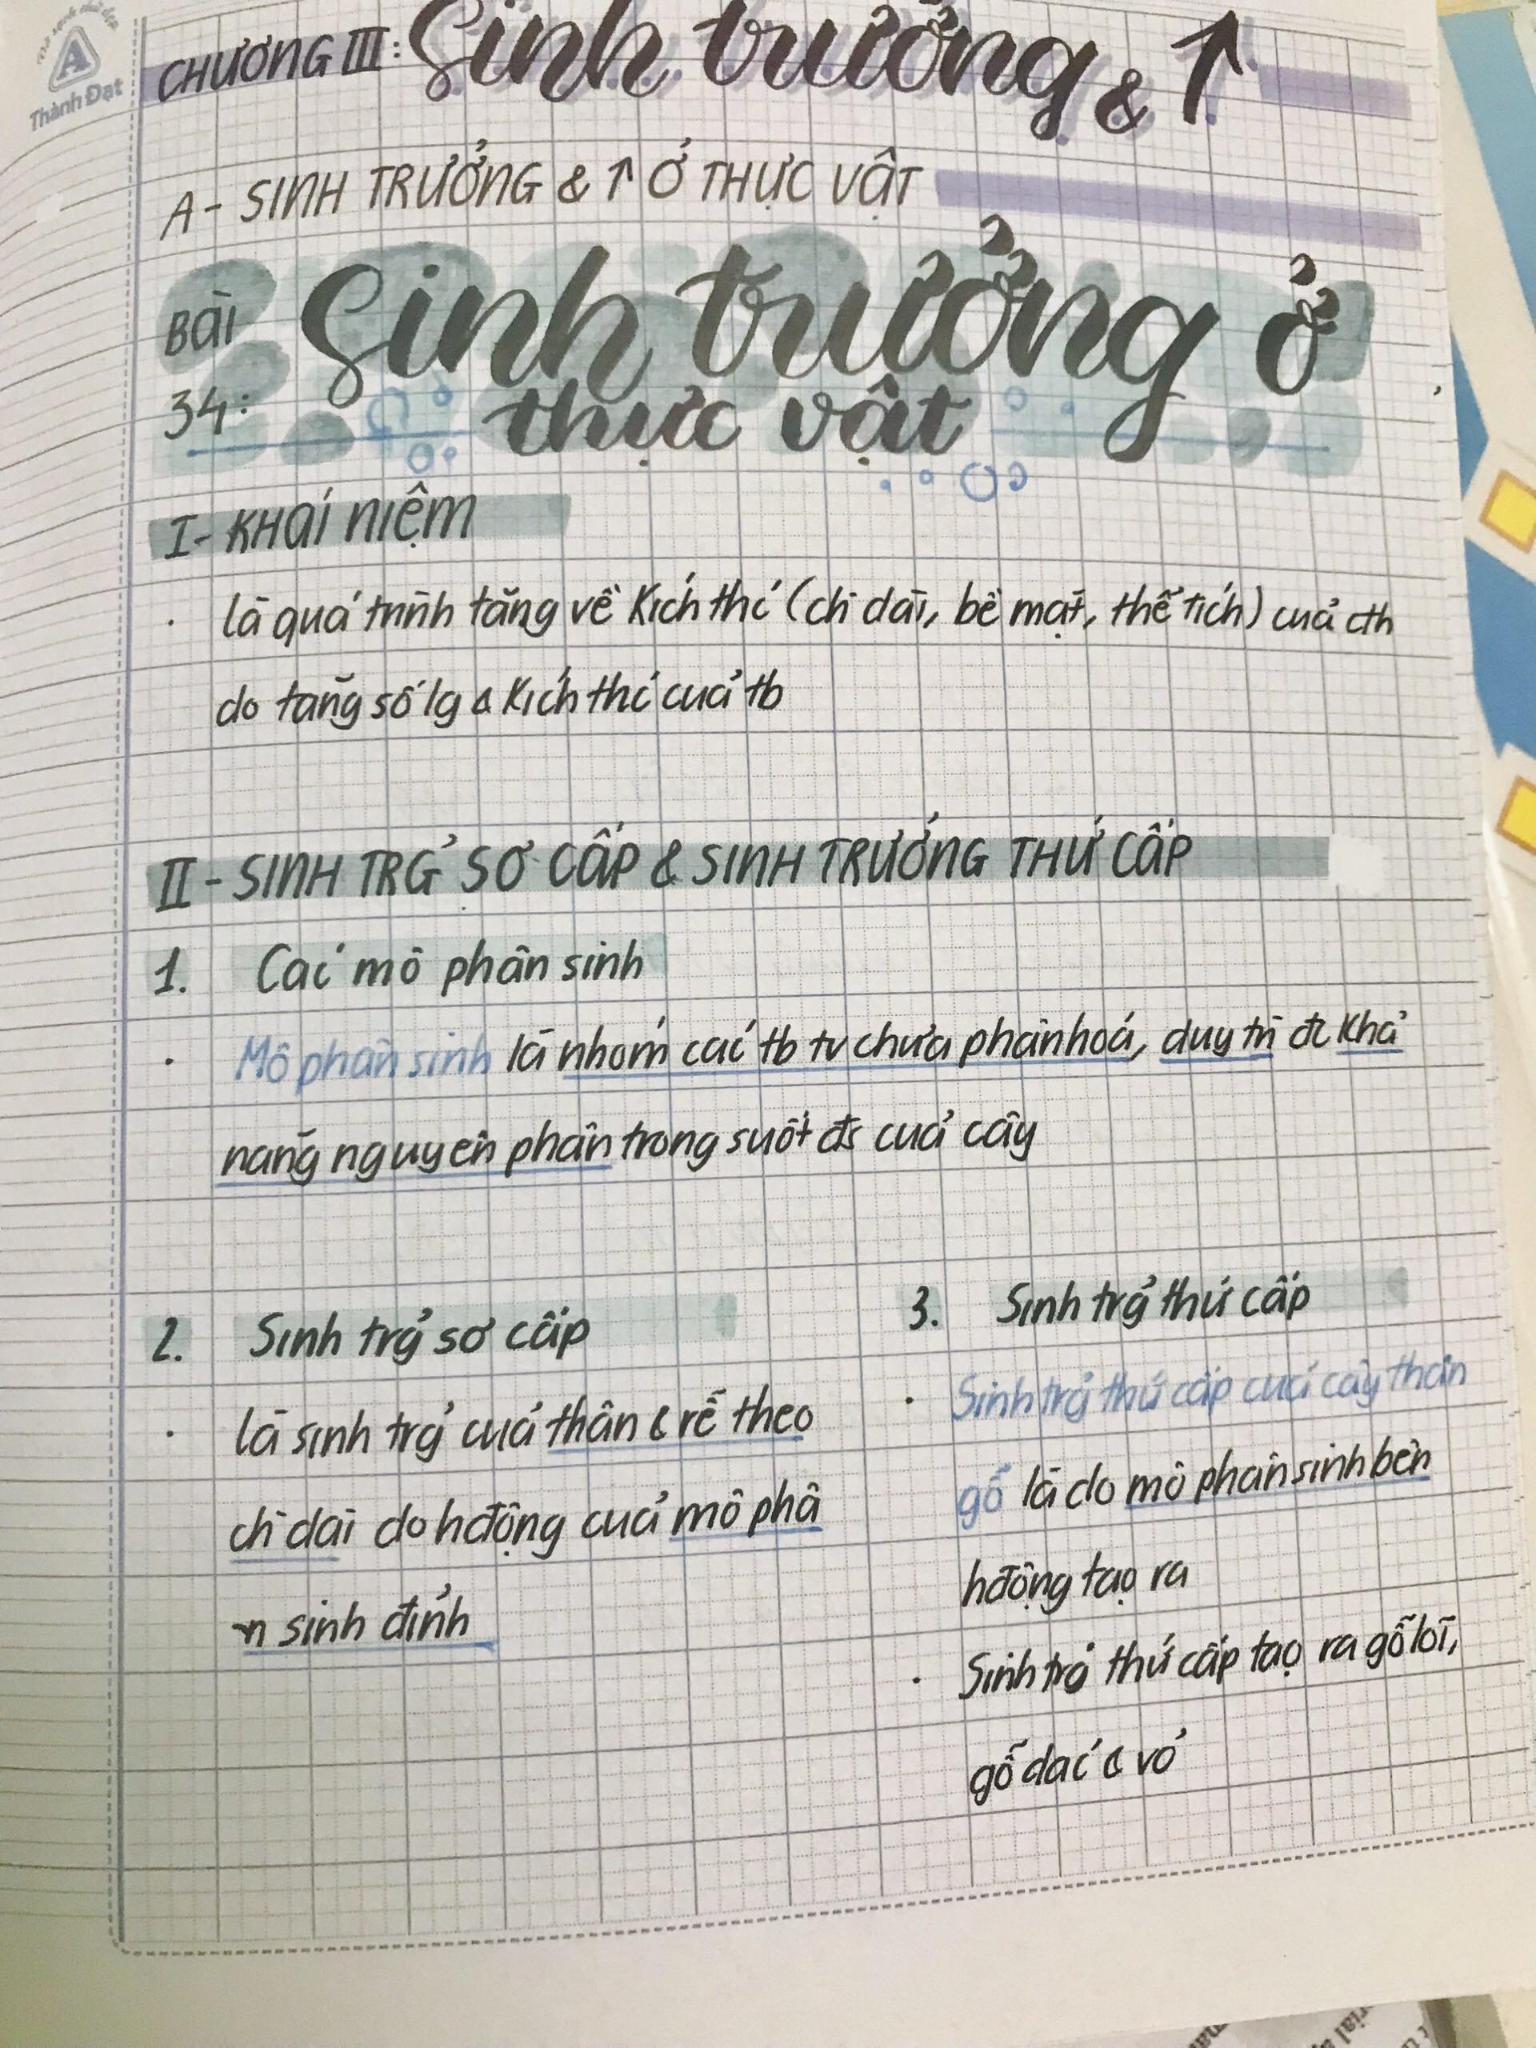 Thành Đạt
CHƯƠNG III: Sinh trưởng & ↑
A - SINH TRƯỞNG & ↑ Ở THỰC VẬT
Bài 34: Sinh trưởng ở
thực vật
I - KHÁI NIỆM
· là quá trình tăng về kích thć (chì dài, bề mặt, thể tích) của cth
do tăng số lg & kích thć của tb
II - SINH TRG̉ SƠ CẤP & SINH TRƯỞNG THỨ CẤP
1. Các mô phân sinh
· Mô phân sinh là nhóm các tb tv chưa phân hoá, duy trì đc khả
năng nguyên phân trong suốt đs của cây
2. Sinh trg̉ sơ cấp
· là sinh trg̉ của thân & rễ theo
chì dài do hđộng của mô phâ
n sinh đỉnh
3. Sinh trg̉ thứ cấp
· Sinh trg̉ thứ cấp của cây thân
gỗ là do mô phân sinh bên
hđộng tạo ra
· Sinh trg̉ thứ cấp tạo ra gỗ lõi,
gỗ dác & vỏ